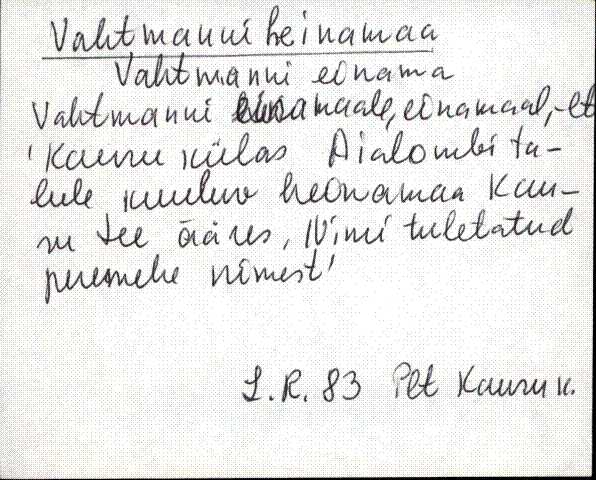 Vahtmanni heinamaa
Vahtmanni einama
Vahtmanni einamaale, einamaal, -lt
'Kauru külas Aialombi ta-
lule kuuluv heinamaa Kau-
ru tee ääres, Nimi tuletatud
peremehe nimest'
L.R. 83 Plt Kauru k.